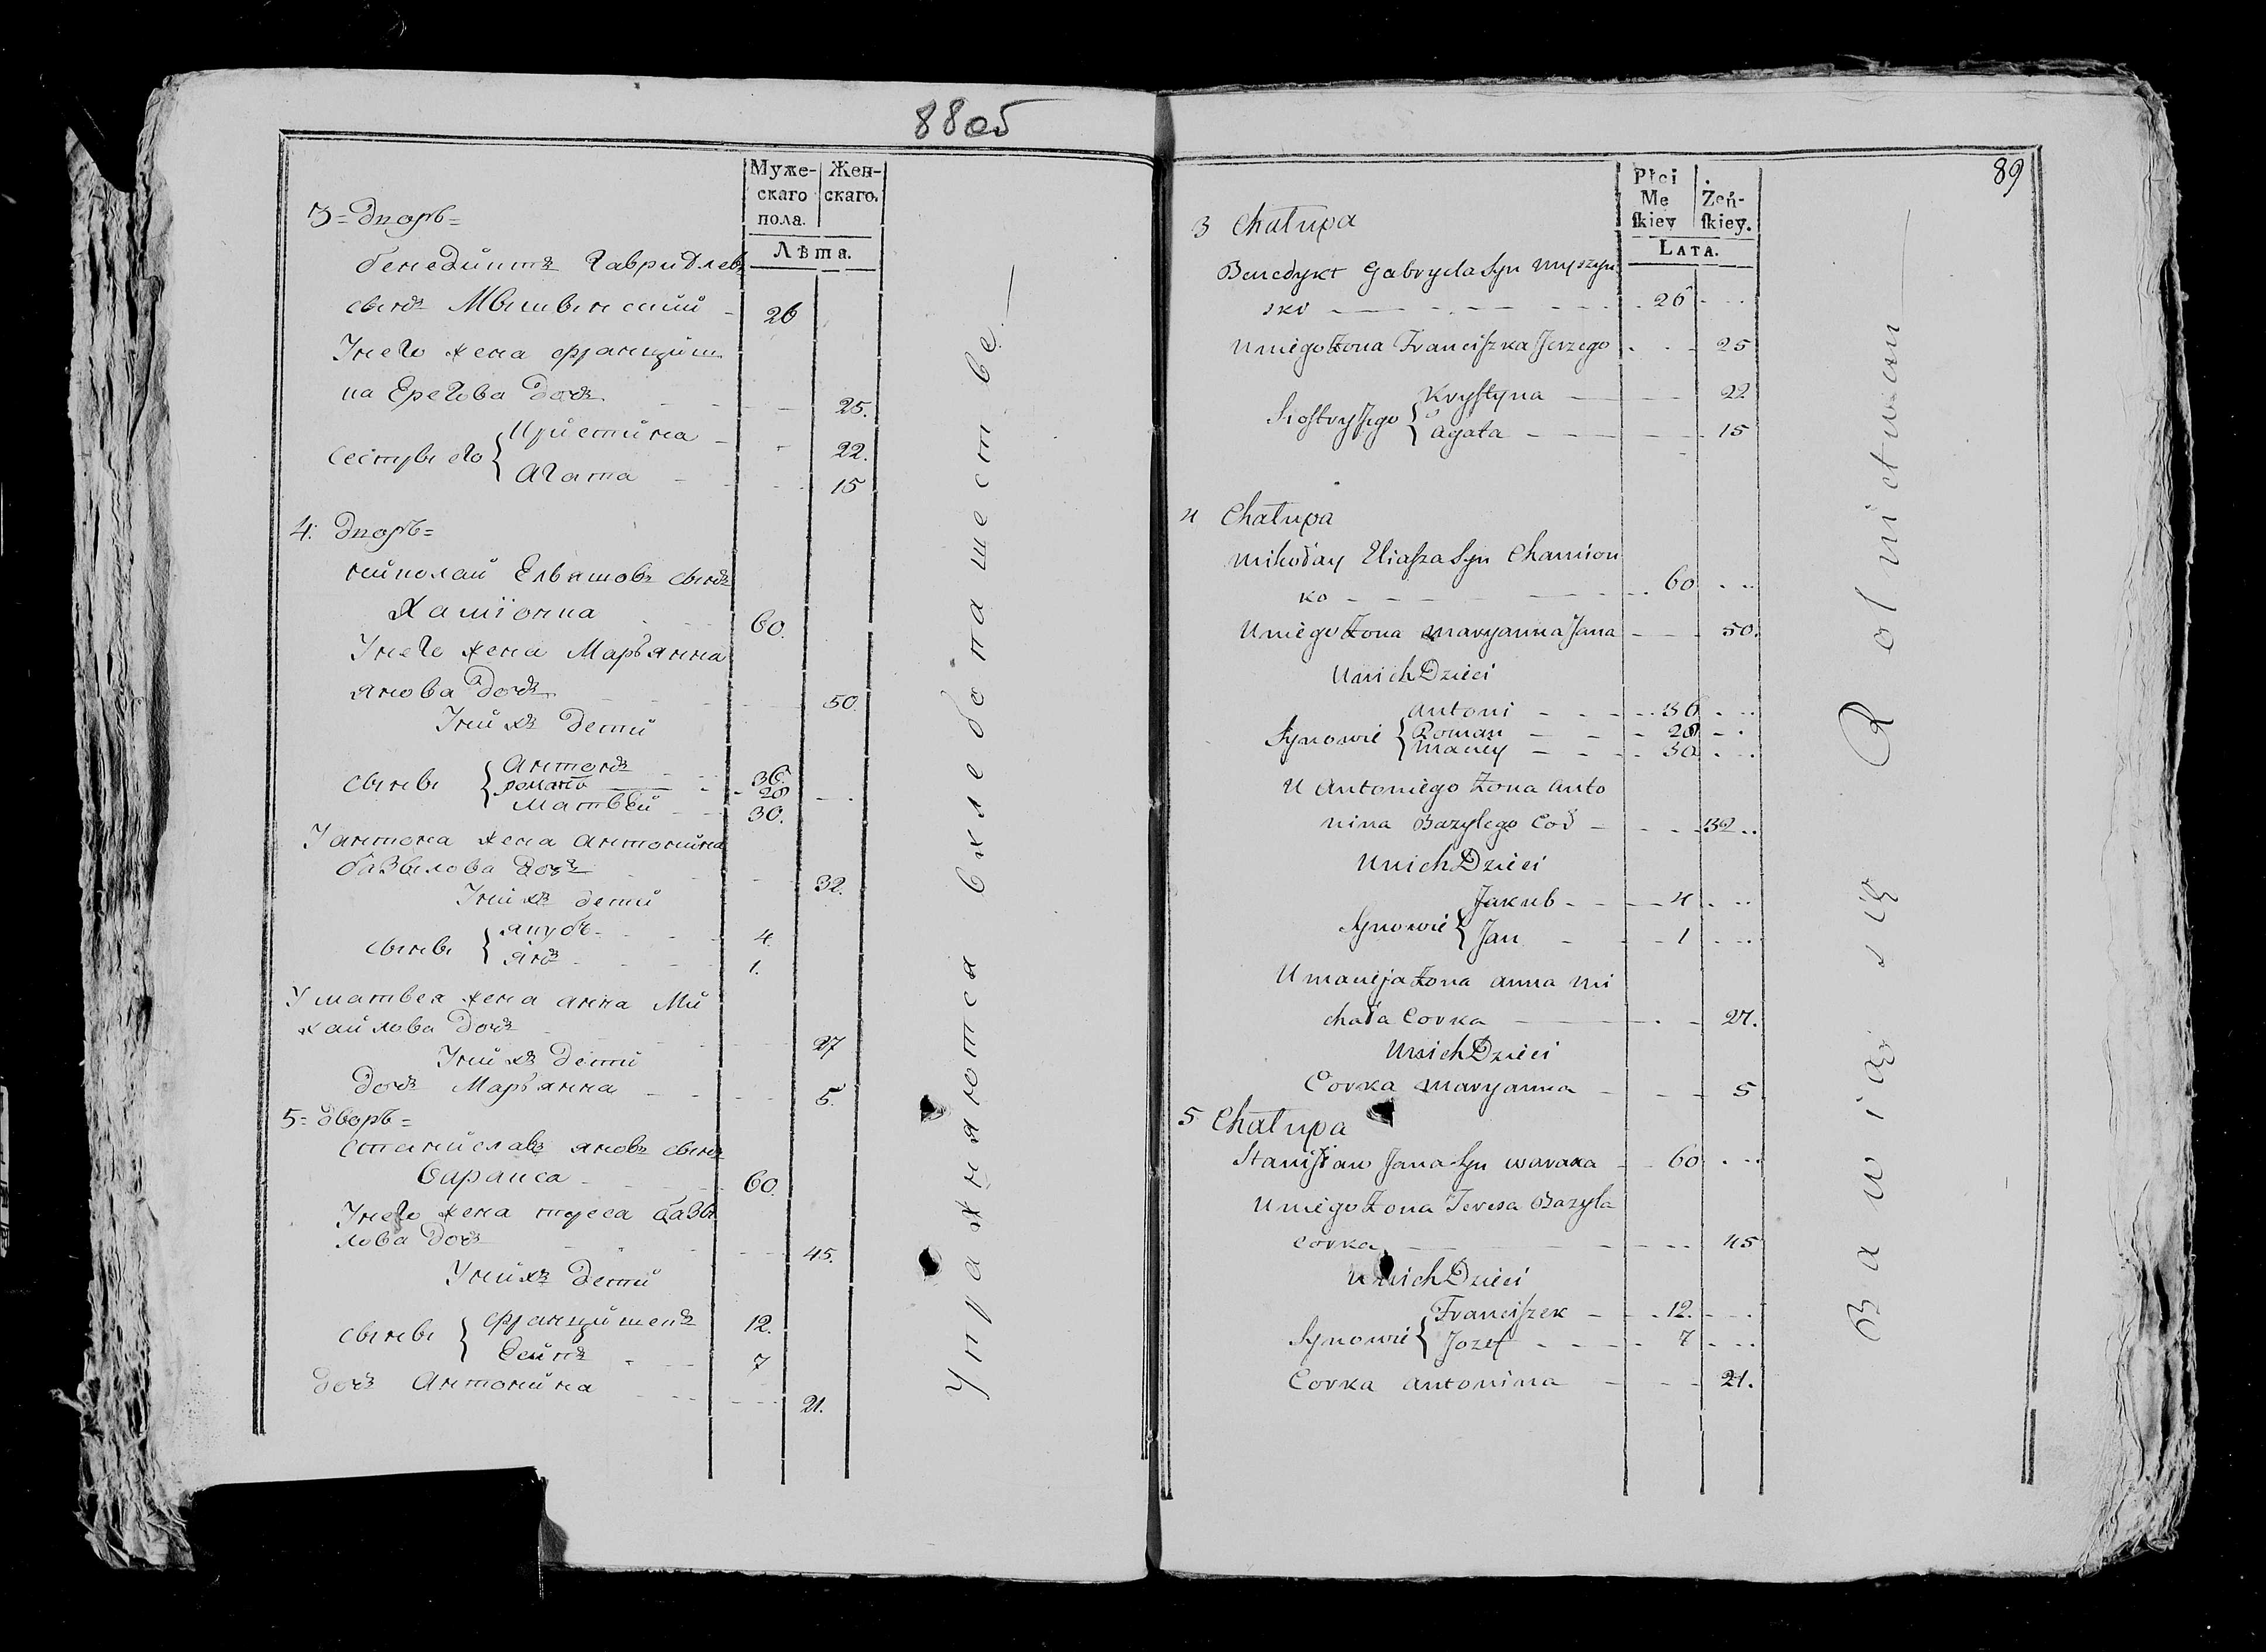 88об
Муже- Жен-
скаго скаго.
пола.
Лѣта.
3 = дворъ =
бенедиктъ Гаврилевъ
сынъ Мышынский - 26
Унего жена францишка
ка Ерегова дочь - - - 25.
сестры его { Кристина - - 22.
Агата - - - 15
4. дворъ =
миколай Ельяшовъ сынъ
Хамiонка 60.
Унего жена Марьянна
янова дочь - - - 50.
Унихъ дети
сыны { Антонъ - - 36.
романъ - - 28
Матвѣй - - 30.
У антона жена антонина
базылова дочь - 32.
Унихъ дети
сыны { якубъ - - - 4.
янъ - - - 1.
У матвея жена анна Ми
хайлова дочь - - - 27
Унихъ дети
дочь Марьянна - - - - 5.
5 = дворъ =
Станиславъ яновъ сынъ
Варакса - - - 60.
Унего жена тереса базы
лова дочь - - - 45.
Унихъ дети
сыны { францишекъ 12.
Осипъ - - - 7
дочь Антонина - - - 21.
Упражняются вхлебопашестве. —
89
Płci
Me Żeń-
ſkiey ſkiey.
LATA.
3 Chałupa
Benedykt Gabryela Syn Myszyn
ski - - - 26 - -
Uniego Żona Franciſzka Jerzego - - - 25
Sioſtry Jego { Kryſtyna - - - 22
Agata - - - 15
4 Chałupa
Mikołay Eliaſza Syn Chamion
ko - - - 60 - -
Uniego Żona Maryanna Jana - - - 50.
Unich Dzieci
Synowie { Antoni - - - 36 - -
Roman - - - 28 - -
Maciey - - - 30 - -
U Antoniego Żona Anto
nina Bazylego Coð - - - 32 - -
Unich Dzieci
Synowie { Jakub - - - 4 - -
Jan - - - 1 - -
U Macieja Żona Anna Mi
chała Corka - - - 27.
Unich Dzieci
Corka Maryanna - - - 5
5 Chałupa
Staniſław Jana Syn Waraxa - - 60 - -
Uniego Żona Teresa Bazyla
Corka - - - 45
Unich Dzieci
Synowie { Franciſzek - - 12. - -
Jozef - - - 7 - -
Corka Antonina - - - 21.
Bawią się Rolnictwem —